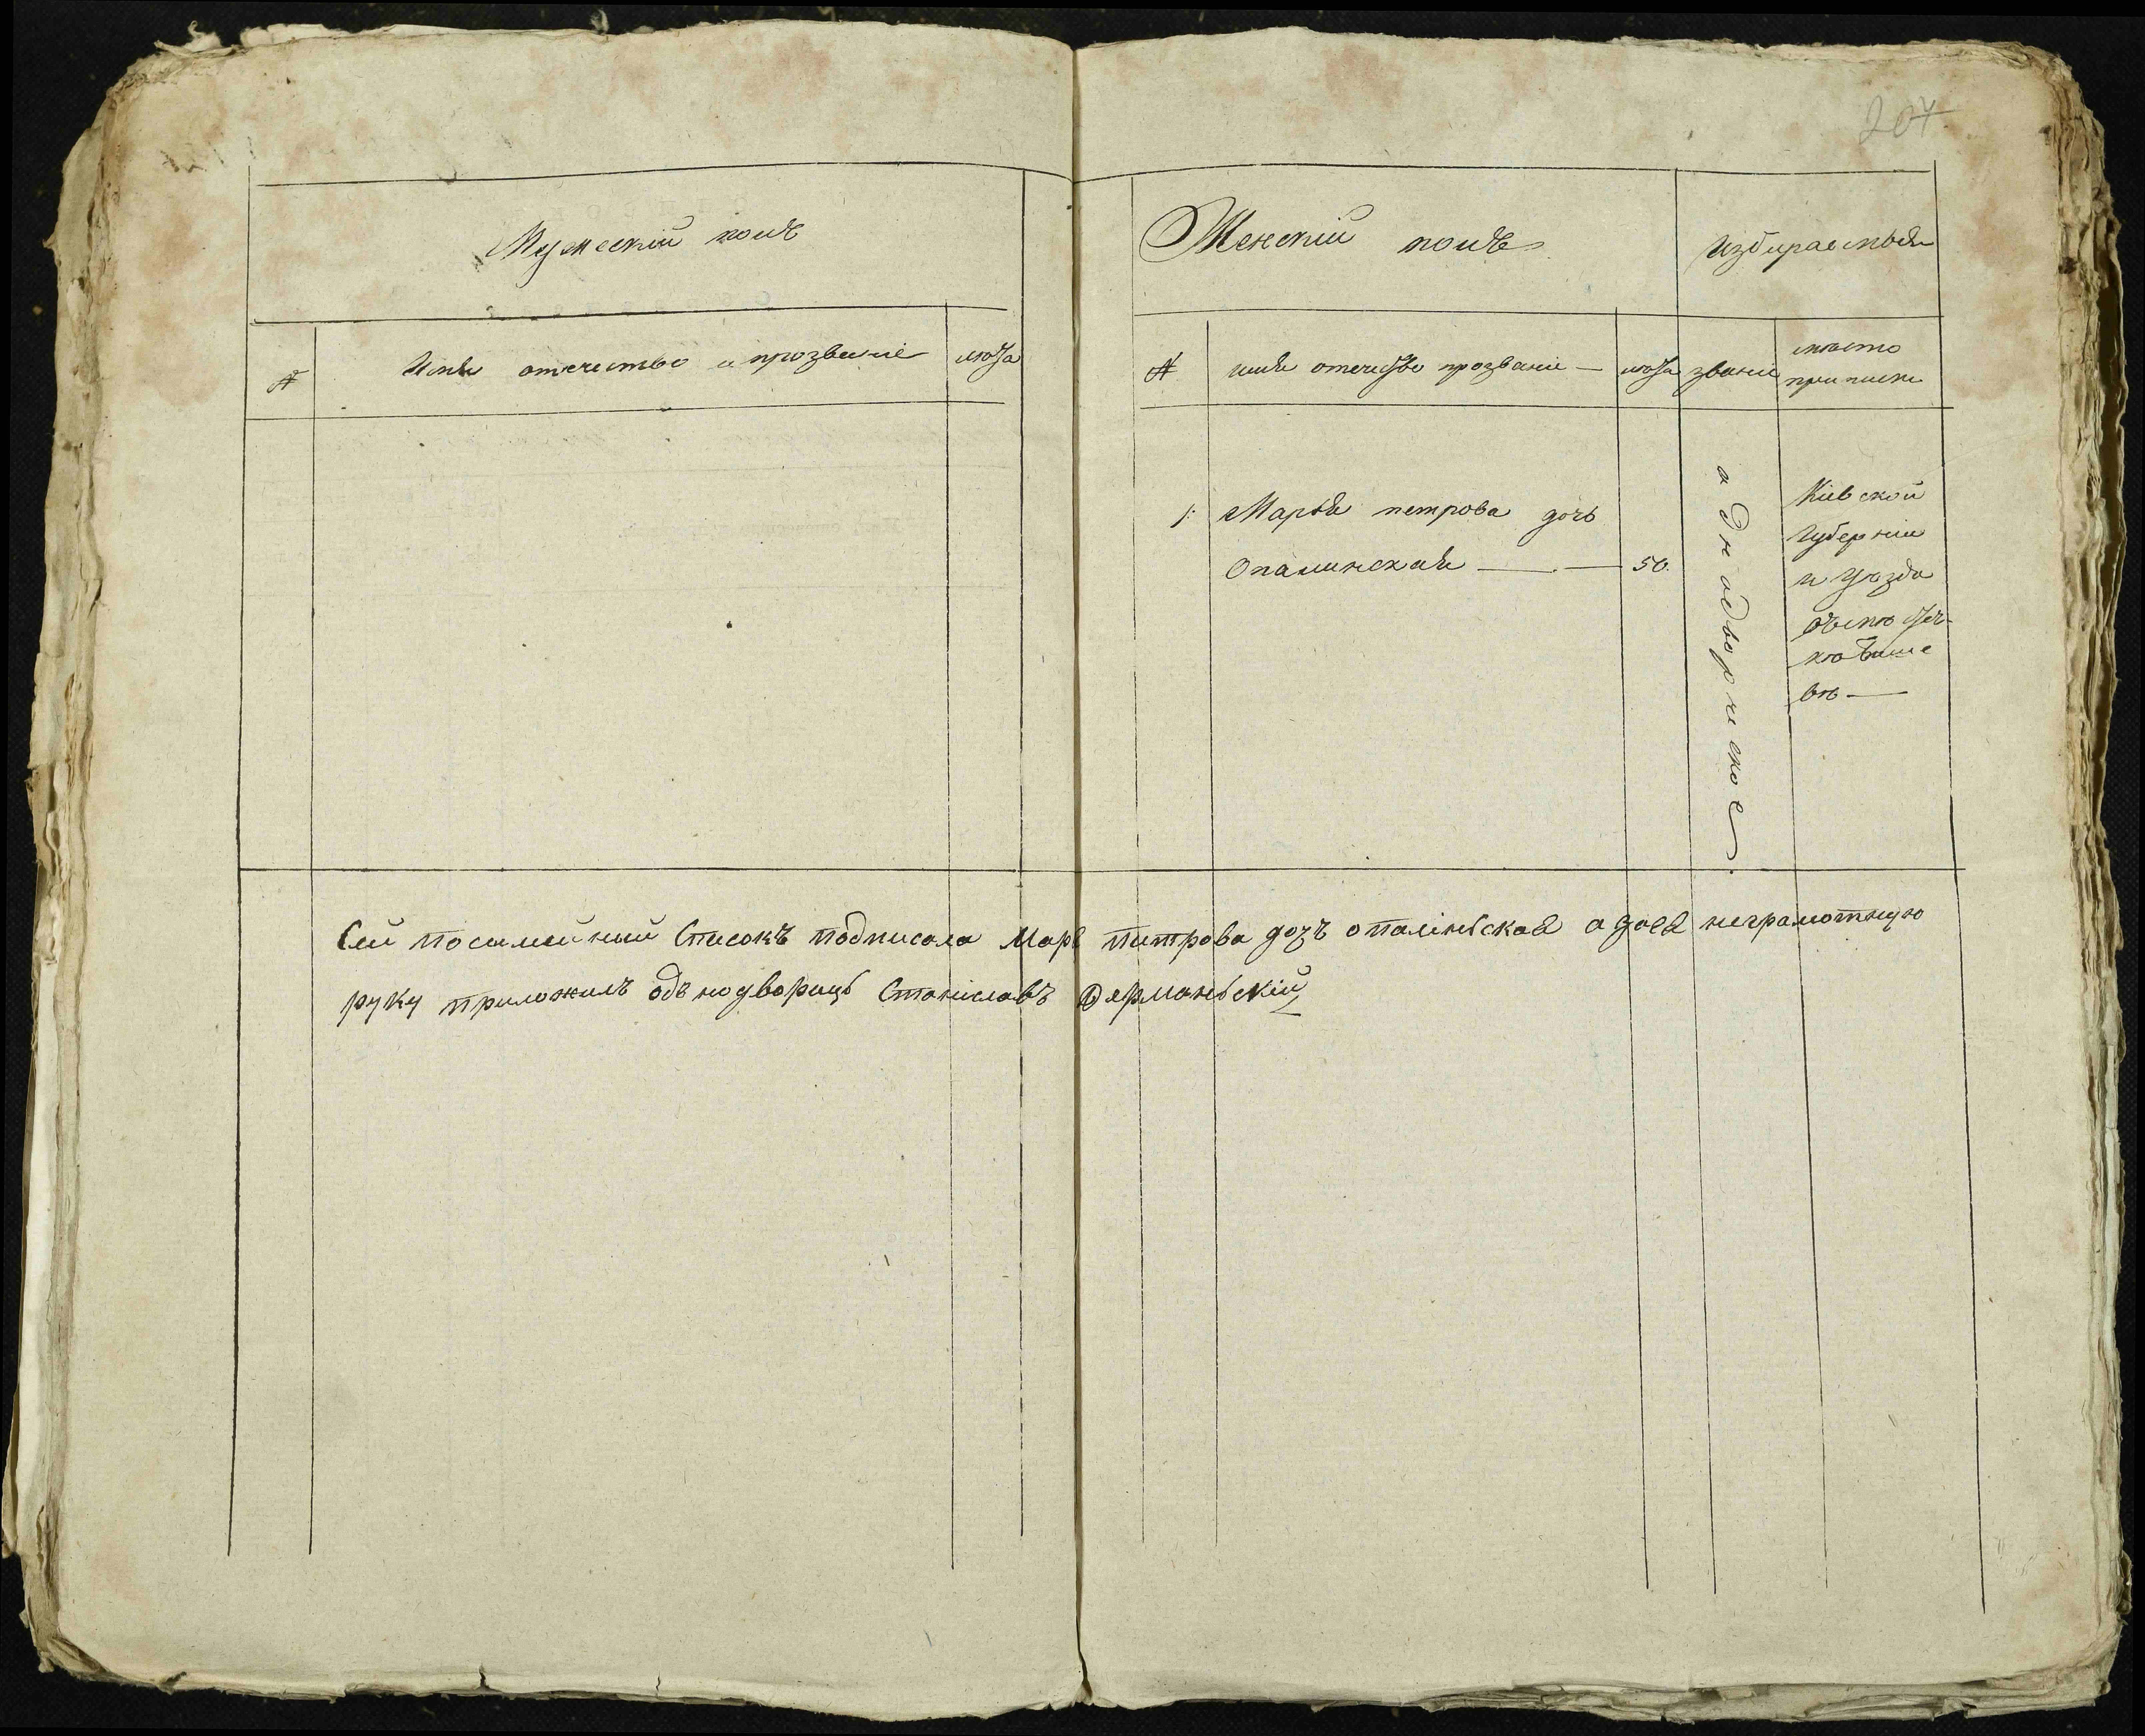 207
Мужескій полъ
№
Имя отечество и прозваніе
лѣта
Женскій полъ
избираемыя
№
имя отечество прозваніе —
лѣта
званіе
мѣсто
приписки
1:
Марья петрова дочь
Опалинская — — 50.
аднодворческое
Кіевской
Губерніи
и уѣзда
Сей посимейный Списокъ подписала Маря питрова дозъ опаліньская а заея неграмотную
руку приложилъ одънодворець Станіславъ Дярманьскій